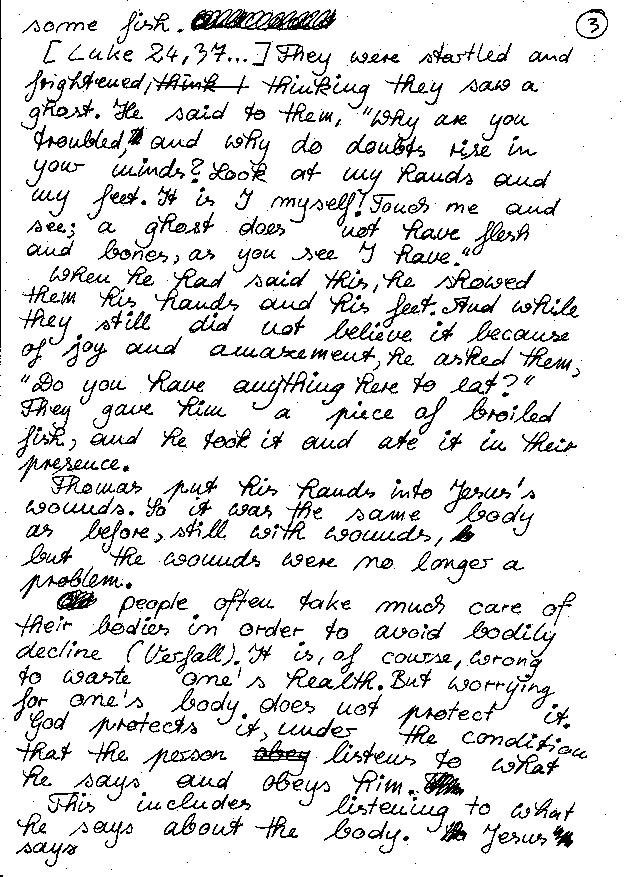 some fish. 3
[Luke 24,37...] They were startled and
frightened, think t thinking they saw a
ghost. He said to them, "Why are you
troubled, and why do doubts rise in
your minds? Look at my hands and
my feet. It is I myself! Touch me and
see; a ghost does not have flesh
and bones, as you see I have."
When he had said this, he showed
them his hands and his feet. And while
they still did not believe it because
of joy and amazement, he asked them,
"Do you have anything here to eat?"
They gave him a piece of broiled
fish, and he took it and ate it in their
presence.
Thomas put his hands into Jesus's
wounds. So it was the same body
as before, still with wounds,
but the wounds were no longer a
problem.
people often take much care of
their bodies in order to avoid bodily
decline (Verfall). It is, of course, wrong
to waste one's health. But worrying
for one's body does not protect it.
God protects it, under the condition
that the person obey listens to what
he says and obeys him.
This includes listening to what
he says about the body. Jesus
says